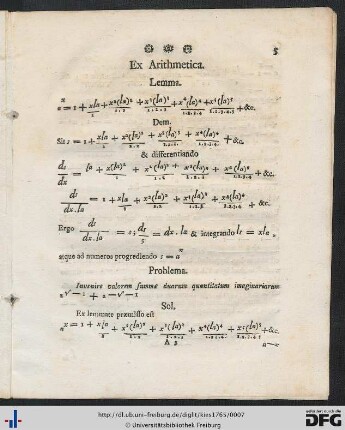 5
Ex Arithmetica.
Lemma.
a^x = 1 + xla/1 + x²(la)²/1.2 + x³(la)³/1.2.3 + x⁴(la)⁴/1.2.3.4 + x⁵(la)⁵/1.2.3.4.5 + &c.
Dem.
Sit s = 1 + xla/1 + x²(la)²/1.2 + x³(la)³/1.2.3 + x⁴(la)⁴/1.2.3.4 + &c.
& differentiando
ds/dx = la + x(la)²/1 + x²(la)³/1.2 + x³(la)⁴/1.2.3 + &c.
ds/dx.la = 1 + xla/1 + x²(la)²/1.2 + x³(la)³/1.2.3 + x⁴(la)⁴/1.2.3.4 + &c.
Ergo ds/dx.la = s; ds/s = dx.la & integrando ls = xla,
atque ad numeros progrediendo s = a^x
Problema.
Invenire valorem summæ duarum quantitatum imaginariarum
a^√−1 + a^−√−1
Sol.
Ex lemmate præmisso est
a^x = 1 + xla/1 + x²(la)²/1.2 + x³(la)³/1.2.3 + x⁴(la)⁴/1.2.3.4 + x⁵(la)⁵/1.2.3.4.5 + &c.
A 3
a^−x
http://dl.ub.uni-freiburg.de/diglit/kies1765/0007
© Universitätsbibliothek Freiburg
gefördert durch die
DFG